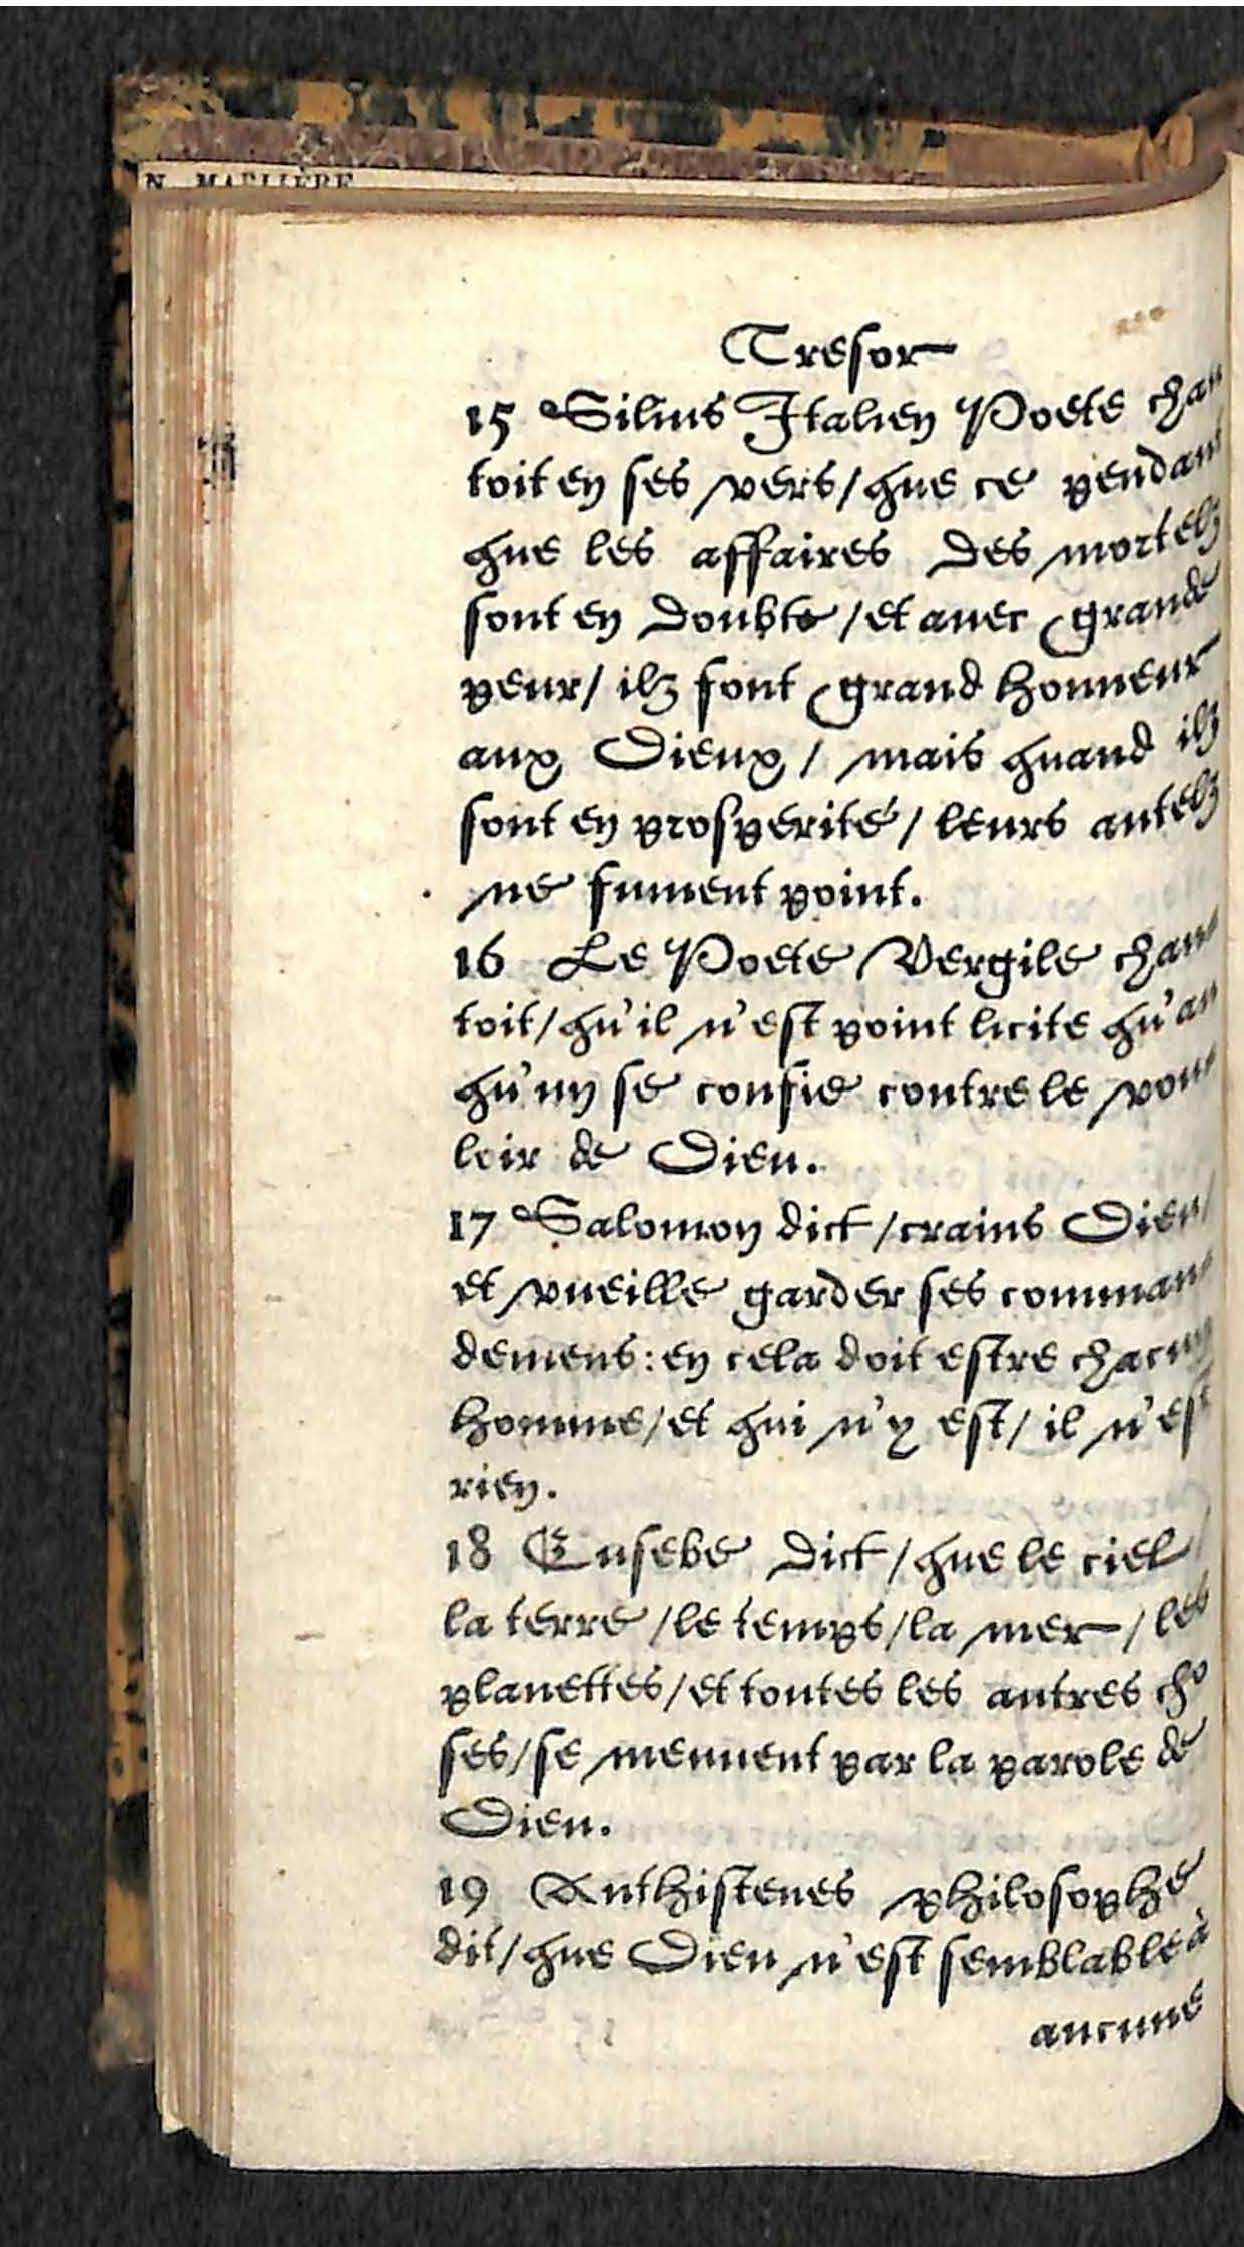 N. MARLIÈRE
Tresor
15 Silius Italien Poete chan
toit en ses vers / que ce pendant
que les affaires des mortelz
sont en doubte / et auec grande
peur / ilz font grand honneur
aux Dieux / mais quand ilz
sont en prosperité / leurs autelz
ne fument point.
16 Le Poete Vergile chan
toit / qu'il n'est point licite qu'au
qu'un se confie contre le vou
loir de Dieu.
17 Salomon dict / crains Dieu /
et vueille garder ses comman
demens : en cela doit estre chacun
homme / et qui n'y est / il n'est
rien.
18 Eusebe dict / que le ciel /
la terre / le temps / la mer / les
planettes / et toutes les autres cho
ses / se meuuent par la parole de
Dieu.
19 Anthistenes philosophe
dit / que Dieu n'est semblable à
aucune